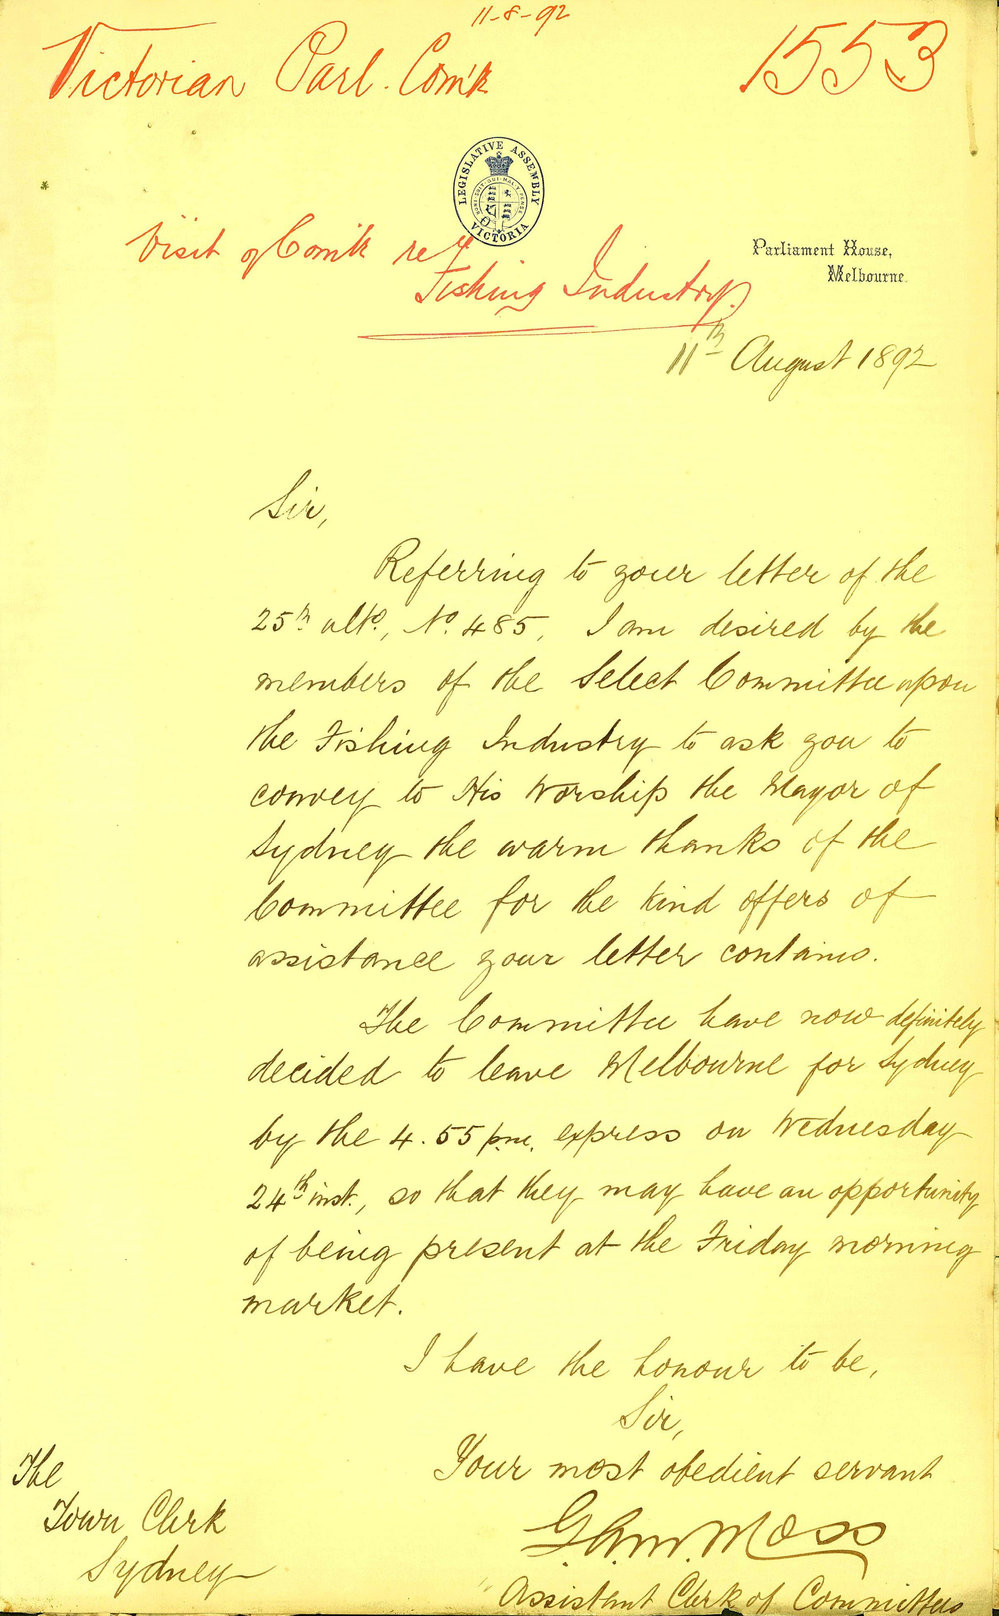 11-8-92
Victorian Parl. Com'k
1553
LEGISLATIVE ASSEMBLY
VICTORIA
Visit of Com'k re
Fishing Industry.
Parliament House,
Melbourne.
11th August 1892
Sir,
Referring to your letter of the
25th ulto., No. 485, I am desired by the
members of the Select Committee upon
the Fishing Industry to ask you to
convey to His Worship the Mayor of
Sydney the warm thanks of the
Committee for the kind offers of
assistance your letter contains.
The Committee have now definitely
decided to leave Melbourne for Sydney
by the 4.55 p.m. express on Wednesday
24th inst., so that they may have an opportunity
of being present at the Friday morning
market.
I have the honour to be,
Sir,
Your most obedient servant
Moss
Assistant Clerk of Committees
The
Town Clerk
Sydney